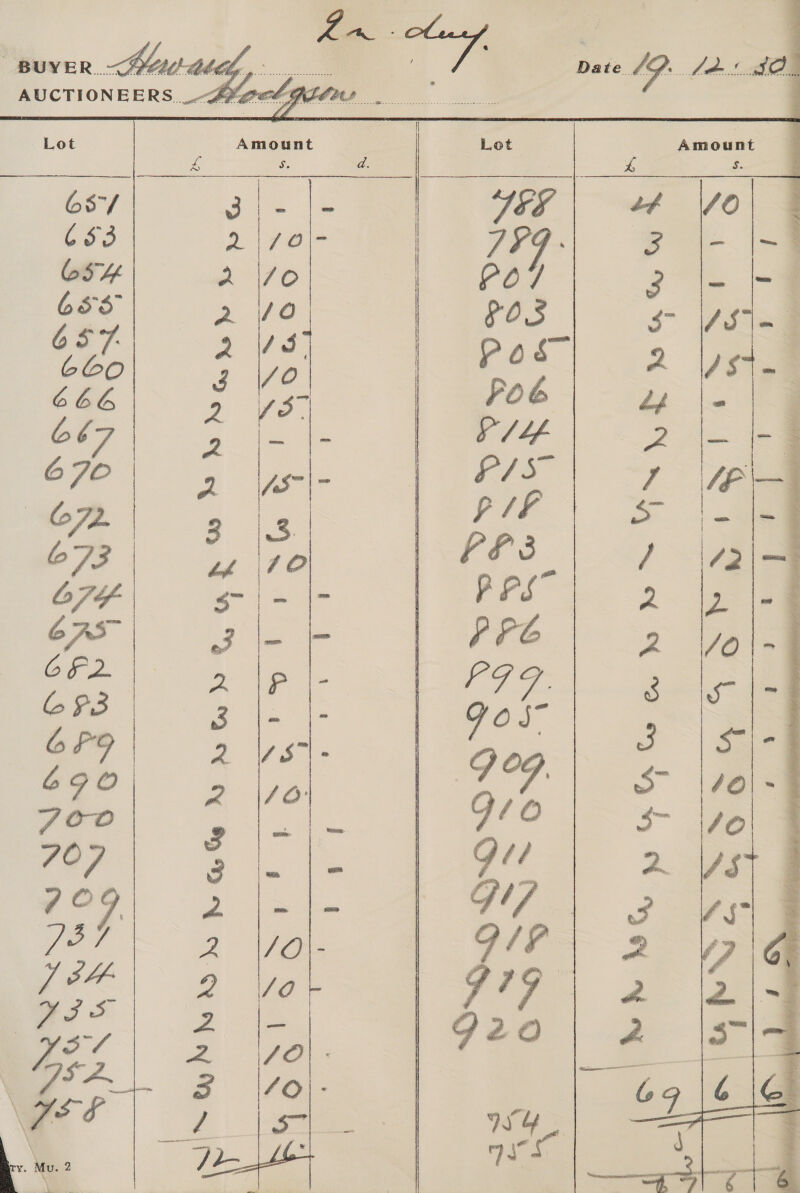 2n day.
BUYER Howard,
Date 19. 12. 30
AUCTIONEERS Hodgson
Lot Amount Lot Amount
£ s. d. £ s.
651 3 - -
653 2 10 -
654 2 10
655 2 10
657. 2 15
660 3 10
666 2 15
667 2 - -
670 2 15 -
672 3 3
673 4 10
674 5 - -
675 3 - -
682 2 8 -
683 3 - -
689 2 15 -
690 2 10
700 3 - -
707 3 - -
709. 2 - -
731 2 10 -
734 2 10 -
735 2 -
751 2 10 -
752 3 10 -
758 1 5
72 16
788 4 10
789. 3 - -
801 3 - -
803 5 15 -
805 2 15 -
806 4 -
814 2 - -
815 1 18 -
818 5 - -
883 1 12 -
885 2 2 -
886 2 10 -
899. 3 5 -
905 3 5 -
909. 5 10 -
910 5 10
911 2 15
917 3 15
918 2 17 6.
919 2 2 -
920 2 5 -
69 6 6
754
755 3
7 6 6
ry. Mu. 2